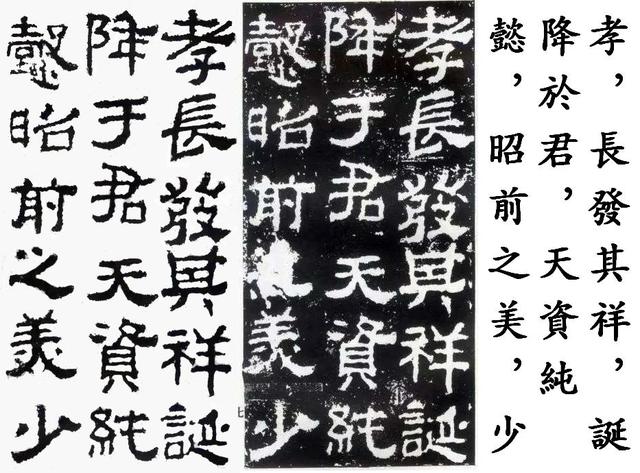 孝，長發其祥，誕
降於君，天資純
懿，昭前之美，少
孝長發其祥誕
降于君天資純
懿昭前之美少
孝長發其祥誕
降于君天資純
懿昭前之美少